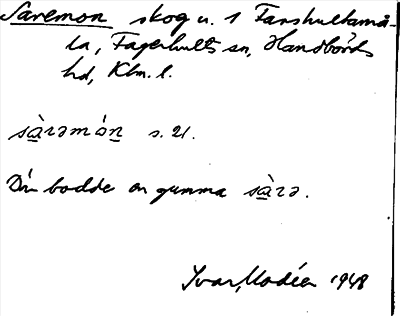 Saremon skog u. 1 Farshultamå-
la, Fagerhults sn, Handbörds
hd, Klm. l.
sàrəmón s. 21.
Där bodde en gumma sàrə.
Ivar Modéer 1948